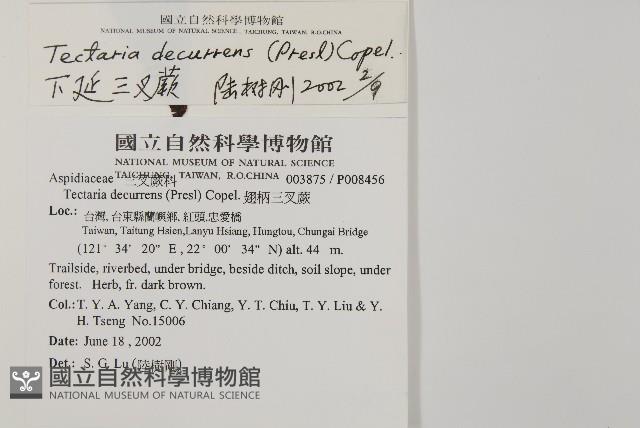 國立自然科學博物館
NATIONAL MUSEUM OF NATURAL SCIENCE, TAICHUNG, TAIWAN, R.O.CHINA
Tectaria decurrens (Presl) Copel.
下延三叉蕨 陸樹剛 2002 2/9
國立自然科學博物館
NATIONAL MUSEUM OF NATURAL SCIENCE
TAICHUNG, TAIWAN, R.O.CHINA
Aspidiaceae 三叉蕨科 003875 / P008456
Tectaria decurrens (Presl) Copel. 翅柄三叉蕨
Loc.: 台灣, 台東縣蘭嶼鄉, 紅頭, 忠愛橋
Taiwan, Taitung Hsien, Lanyu Hsiang, Hungtou, Chungai Bridge
(121° 34′ 20″ E , 22° 00′ 34″ N) alt. 44 m.
Trailside, riverbed, under bridge, beside ditch, soil slope, under
forest. Herb, fr. dark brown.
Col.: T. Y. A. Yang, C. Y. Chiang, Y. T. Chiu, T. Y. Liu & Y.
H. Tseng No.15006
Date: June 18 , 2002
Det.: S. G. Lu (陸樹剛)
國立自然科學博物館
NATIONAL MUSEUM OF NATURAL SCIENCE